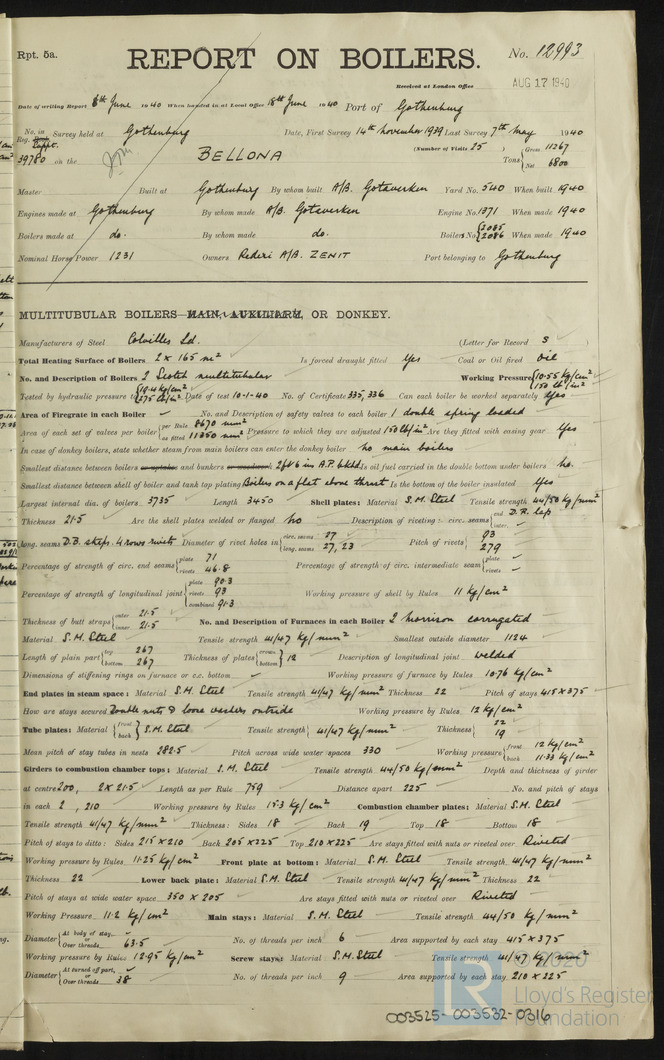 Rpt. 5a.
REPORT ON BOILERS.
No. 12993
Received at London Office
AUG 17 1940
Date of writing Report 6th June 1940 When handed in at Local Office 18th June 1940 Port of Gothenburg
No. in Survey held at Gothenburg Date, First Survey 14th November 1939 Last Survey 7th May 1940
Reg. Book.
39780 on the BELLONA (Number of Visits 25) Tons Gross 11267 Net 6800
Master Built at Gothenburg By whom built A/B. Gotaverken Yard No. 540 When built 1940
Engines made at Gothenburg By whom made A/B. Gotaverken Engine No. 1371 When made 1940
Boilers made at do. By whom made do. Boilers No. 2085 2086 When made 1940
Nominal Horse Power 1231 Owners Rederi A/B. ZENIT Port belonging to Gothenburg
MULTITUBULAR BOILERS MAIN, AUXILIARY, OR DONKEY.
Manufacturers of Steel Colvilles Ld. (Letter for Record S)
Total Heating Surface of Boilers 2 x 165 m² Is forced draught fitted Yes Coal or Oil fired oil
No. and Description of Boilers 2 Scotch multitubular Working Pressure 10.55 kg/cm² 150 lb/in²
Tested by hydraulic pressure to 19.4 kg/cm² 275 lb/in² Date of test 10-1-40 No. of Certificate 335, 336 Can each boiler be worked separately Yes
Area of Firegrate in each Boiler No. and Description of safety valves to each boiler 1 double spring loaded
Area of each set of valves per boiler per Rule 8670 mm² as fitted 11350 mm² Pressure to which they are adjusted 150 lb/in² Are they fitted with easing gear Yes
In case of donkey boilers, state whether steam from main boilers can enter the donkey boiler no main boilers
Smallest distance between boilers or uptakes and bunkers or woodwork 2ft 6 in A.P. bkhd Is oil fuel carried in the double bottom under boilers no.
Smallest distance between shell of boiler and tank top plating Boilers on a flat above thrust Is the bottom of the boiler insulated yes
Largest internal dia. of boilers 3735 Length 3450 Shell plates: Material S.M. Steel Tensile strength 44/50 kg/mm²
Thickness 21.5 Are the shell plates welded or flanged no Description of riveting: circ. seams end D.R. lap inter.
long. seams D.B. straps. 4 rows rivets Diameter of rivet holes in circ. seams 27 long. seams 27, 23 Pitch of rivets 93 279
Percentage of strength of circ. end seams plate 71 rivets 46.8 Percentage of strength of circ. intermediate seam plate rivets
Percentage of strength of longitudinal joint plate 90.3 rivets 93 combined 91.3 Working pressure of shell by Rules 11 Kg/cm²
Thickness of butt straps outer 21.5 inner 21.5 No. and Description of Furnaces in each Boiler 2 Morrison corrugated
Material S.M. Steel Tensile strength 41/47 Kg/mm² Smallest outside diameter 1124
Length of plain part top 267 bottom 267 Thickness of plates crown bottom 12 Description of longitudinal joint welded
Dimensions of stiffening rings on furnace or c.c. bottom Working pressure of furnace by Rules 10.76 Kg/cm²
End plates in steam space: Material S.M. Steel Tensile strength 41/47 Kg/mm² Thickness 22 Pitch of stays 415 x 375
How are stays secured Double nuts & loose washers outside Working pressure by Rules 12 Kg/cm²
Tube plates: Material front back S.M. Steel Tensile strength 41/47 Kg/mm² Thickness 22 19
Mean pitch of stay tubes in nests 282.5 Pitch across wide water spaces 330 Working pressure front 12 Kg/cm² back 11.33 Kg/cm²
Girders to combustion chamber tops: Material S.M. Steel Tensile strength 44/50 Kg/mm² Depth and thickness of girder
at centre 200, 2 x 21.5 Length as per Rule 759 Distance apart 225 No. and pitch of stays
in each 2, 210 Working pressure by Rules 15.3 Kg/cm² Combustion chamber plates: Material S.M. Steel
Tensile strength 41/47 Kg/mm² Thickness: Sides 18 Back 19 Top 18 Bottom 18
Pitch of stays to ditto: Sides 215 x 210 Back 205 x 225 Top 210 x 225 Are stays fitted with nuts or riveted over Riveted
Working pressure by Rules 11.25 Kg/cm² Front plate at bottom: Material S.M. Steel Tensile strength 41/47 Kg/mm²
Thickness 22 Lower back plate: Material S.M. Steel Tensile strength 41/47 Kg/mm² Thickness 22
Pitch of stays at wide water space 350 x 205 Are stays fitted with nuts or riveted over Riveted
Working Pressure 11.2 Kg/cm² Main stays: Material S.M. Steel Tensile strength 44/50 Kg/mm²
Diameter At body of stay, or Over threads 63.5 No. of threads per inch 6 Area supported by each stay 415 x 375
Working pressure by Rules 12.95 Kg/cm² Screw stays: Material S.M. Steel Tensile strength 41/47 Kg/mm²
Diameter At turned off part, or Over threads 38 No. of threads per inch 9 Area supported by each stay 210 x 225
LR
Lloyd's Register
Foundation
003525-003532-0316